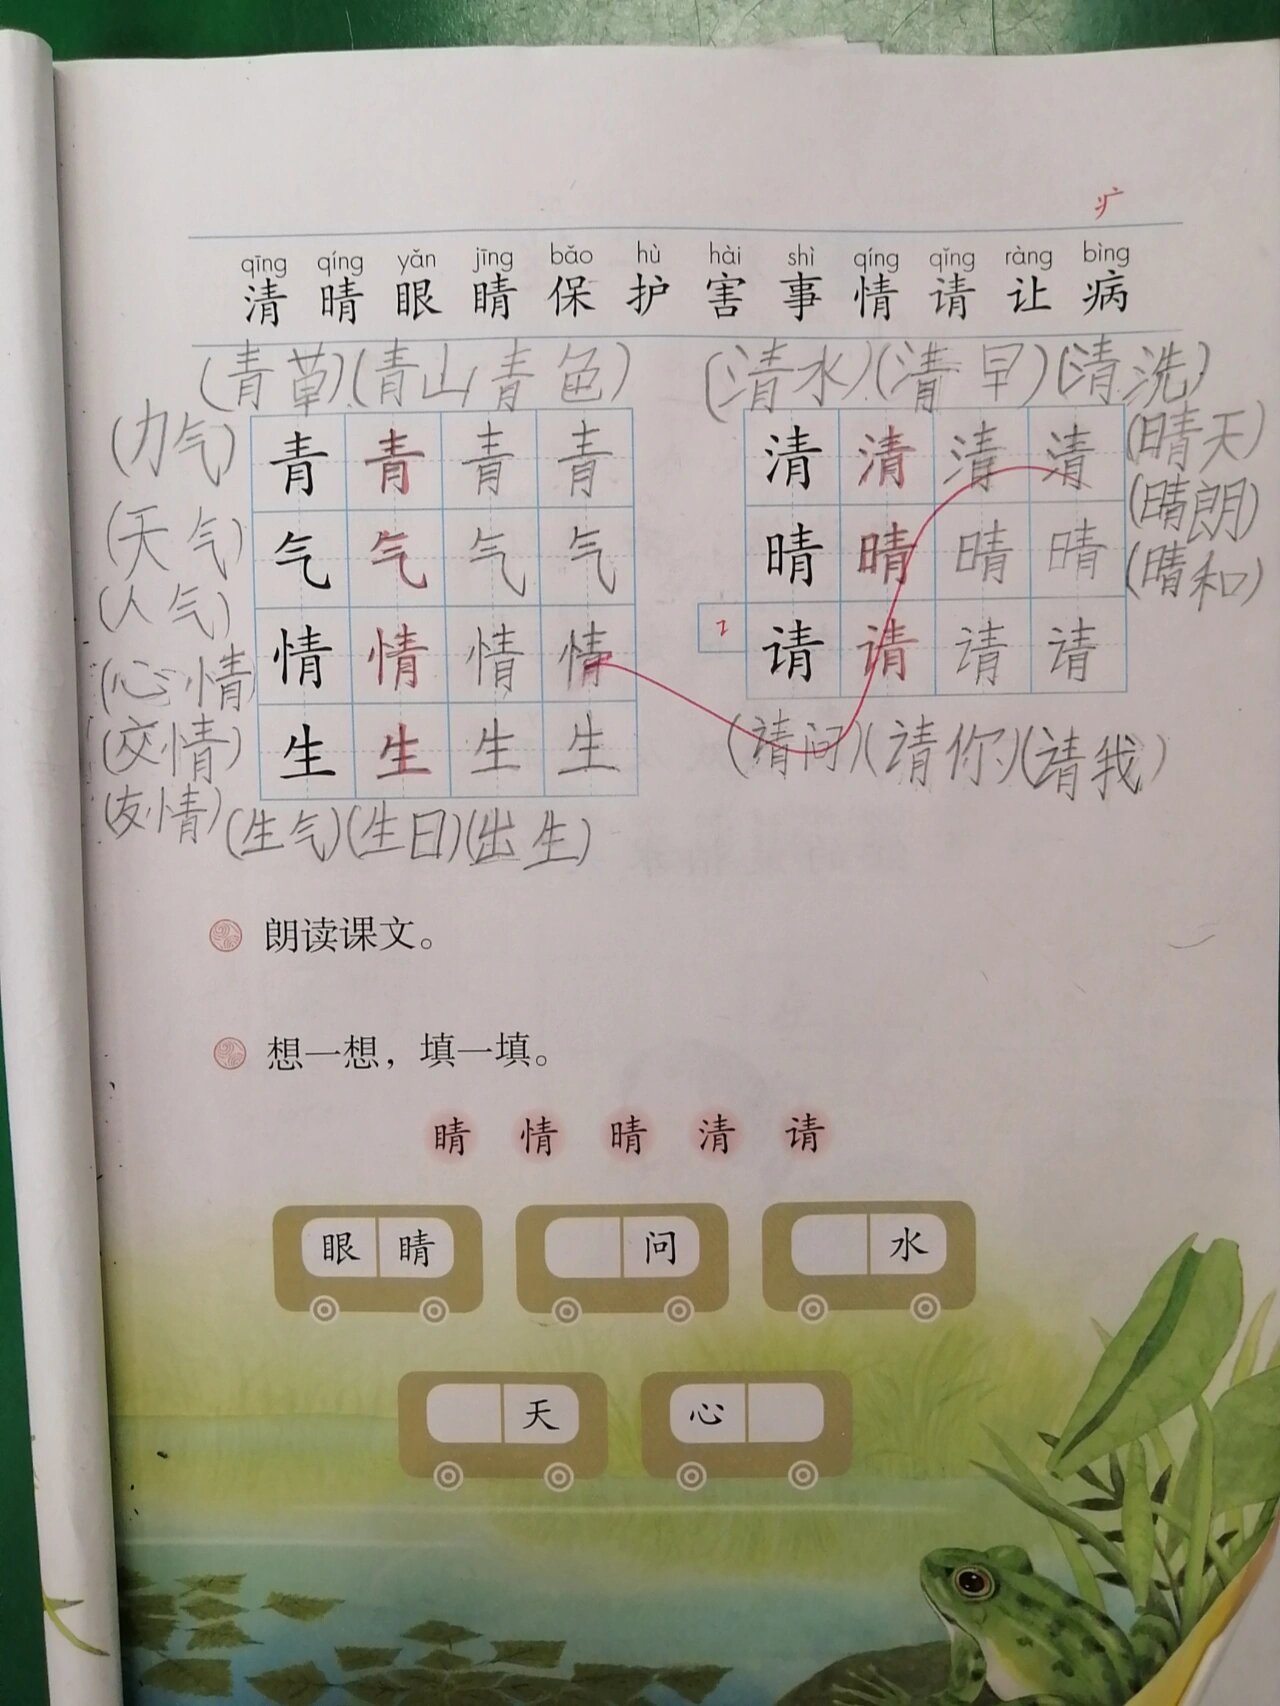 疒
qīng qíng yǎn jīng bǎo hù hài shì qíng qǐng ràng bìng
清 晴 眼 睛 保 护 害 事 情 请 让 病
(青草)(青山 青色) (清水)(清早)(清洗)
(力气) 青 青 青 青 清 清 清 清 (晴天)
(晴朗)
(天气) 气 气 气 气 晴 晴 晴 晴 (晴和)
(人气)
(心情) 情 情 情 情 2 请 请 请 请
(交情) 生 生 生 生 (请问)(请你)(请我)
(友情)(生气)(生日)(出生)
朗读课文。
想一想，填一填。
睛 情 晴 清 请
眼 睛 问 水
天 心